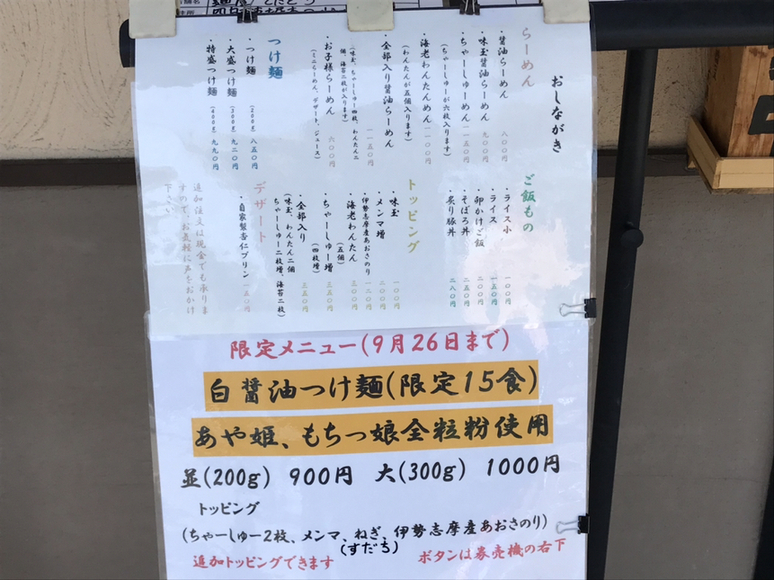 おしながき
らーめん
・醤油らーめん 八〇〇円
・味玉醤油らーめん 九〇〇円
・ちゃーしゅーめん 一一五〇円
(ちゃーしゅーが六枚入ります)
・海老わんたんめん 一一〇〇円
(わんたんが五個入ります)
・全部入り醤油らーめん 一一五〇円
(味玉、ちゃーしゅー四枚、わんたん二個、海苔二枚が入ります)
・お子様らーめん 六〇〇円
(ミニらーめん、デザート、ジュース)
つけ麺
・つけ麺 (200g) 八五〇円
・大盛つけ麺 (300g) 九二〇円
・特盛つけ麺 (400g) 九九〇円
ご飯もの
・ライス小 一〇〇円
・ライス 一五〇円
・卵かけご飯 二〇〇円
・そぼろ丼 二五〇円
・炙り豚丼 二八〇円
トッピング
・味玉 一〇〇円
・メンマ増 二〇〇円
・伊勢志摩産あおさのり 一二〇円
・海老わんたん (五個) 三〇〇円
・ちゃーしゅー増 (四枚増) 三五〇円
・全部入り 三五〇円
(味玉、わんたん二個
ちゃーしゅー二枚増、海苔二枚)
デザート
・自家製杏仁プリン 一五〇円
追加注文は現金でも承りま
すので、お気軽に声をおかけ
下さい
限定メニュー(9月26日まで)
白醤油つけ麺(限定15食)
あや姫、もちっ娘全粒粉使用
並(200g) 900円 大(300g) 1000円
トッピング
(ちゃーしゅー2枚、メンマ、ねぎ、伊勢志摩産あおさのり)
(すだち)
追加トッピングできます ボタンは券売機の右下